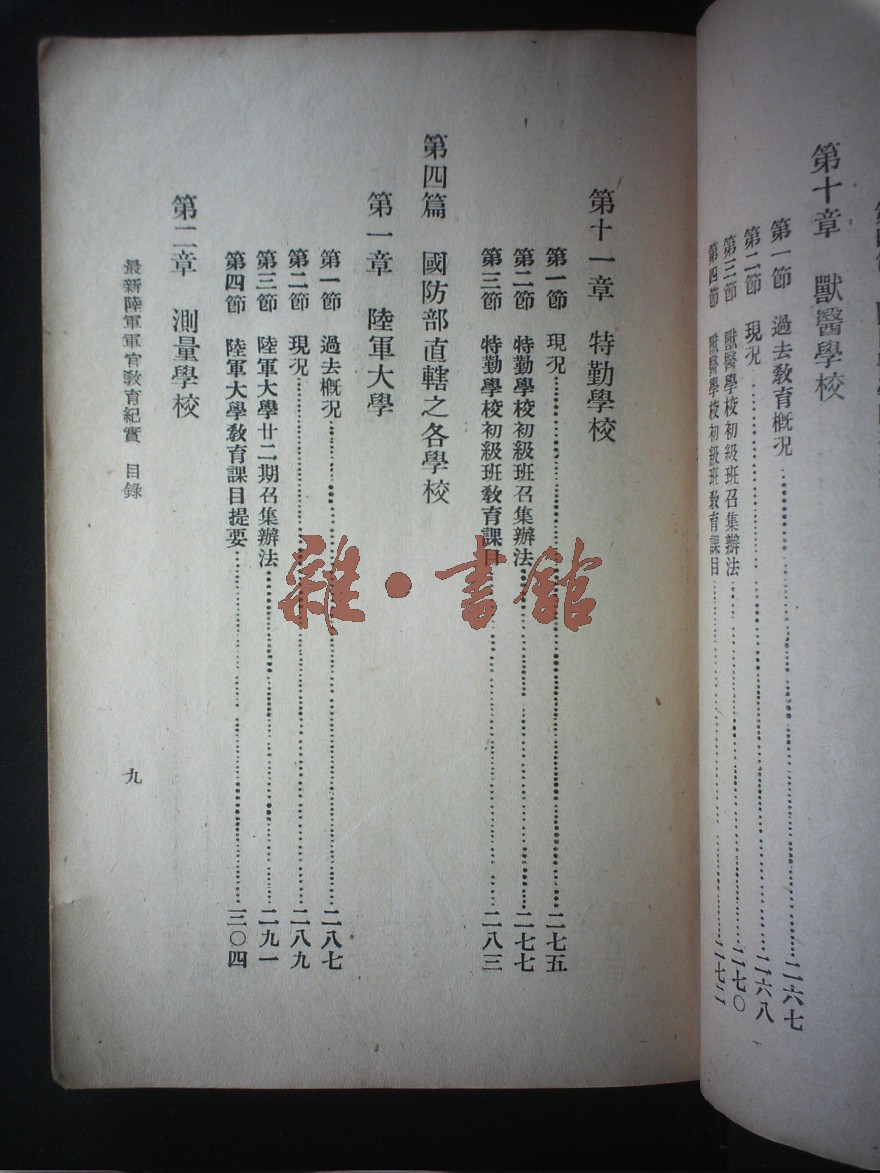 第十章 獸醫學校
第一節 過去教育概況……二六七
第二節 現況……二六八
第三節 獸醫學校初級班召集辦法……二七〇
第四節 獸醫學校初級班教育課目……二七二
第十一章 特勤學校
第一節 現況……二七五
第二節 特勤學校初級班召集辦法……二七七
第三節 特勤學校初級班教育課目……二八三
第四篇 國防部直轄之各學校
第一章 陸軍大學
第一節 過去概況……二八七
第二節 現況……二八九
第三節 陸軍大學廿二期召集辦法……二九一
第四節 陸軍大學教育課目提要……三〇四
第二章 測量學校
最新陸軍軍官教育紀實 目錄
九
雜·書館